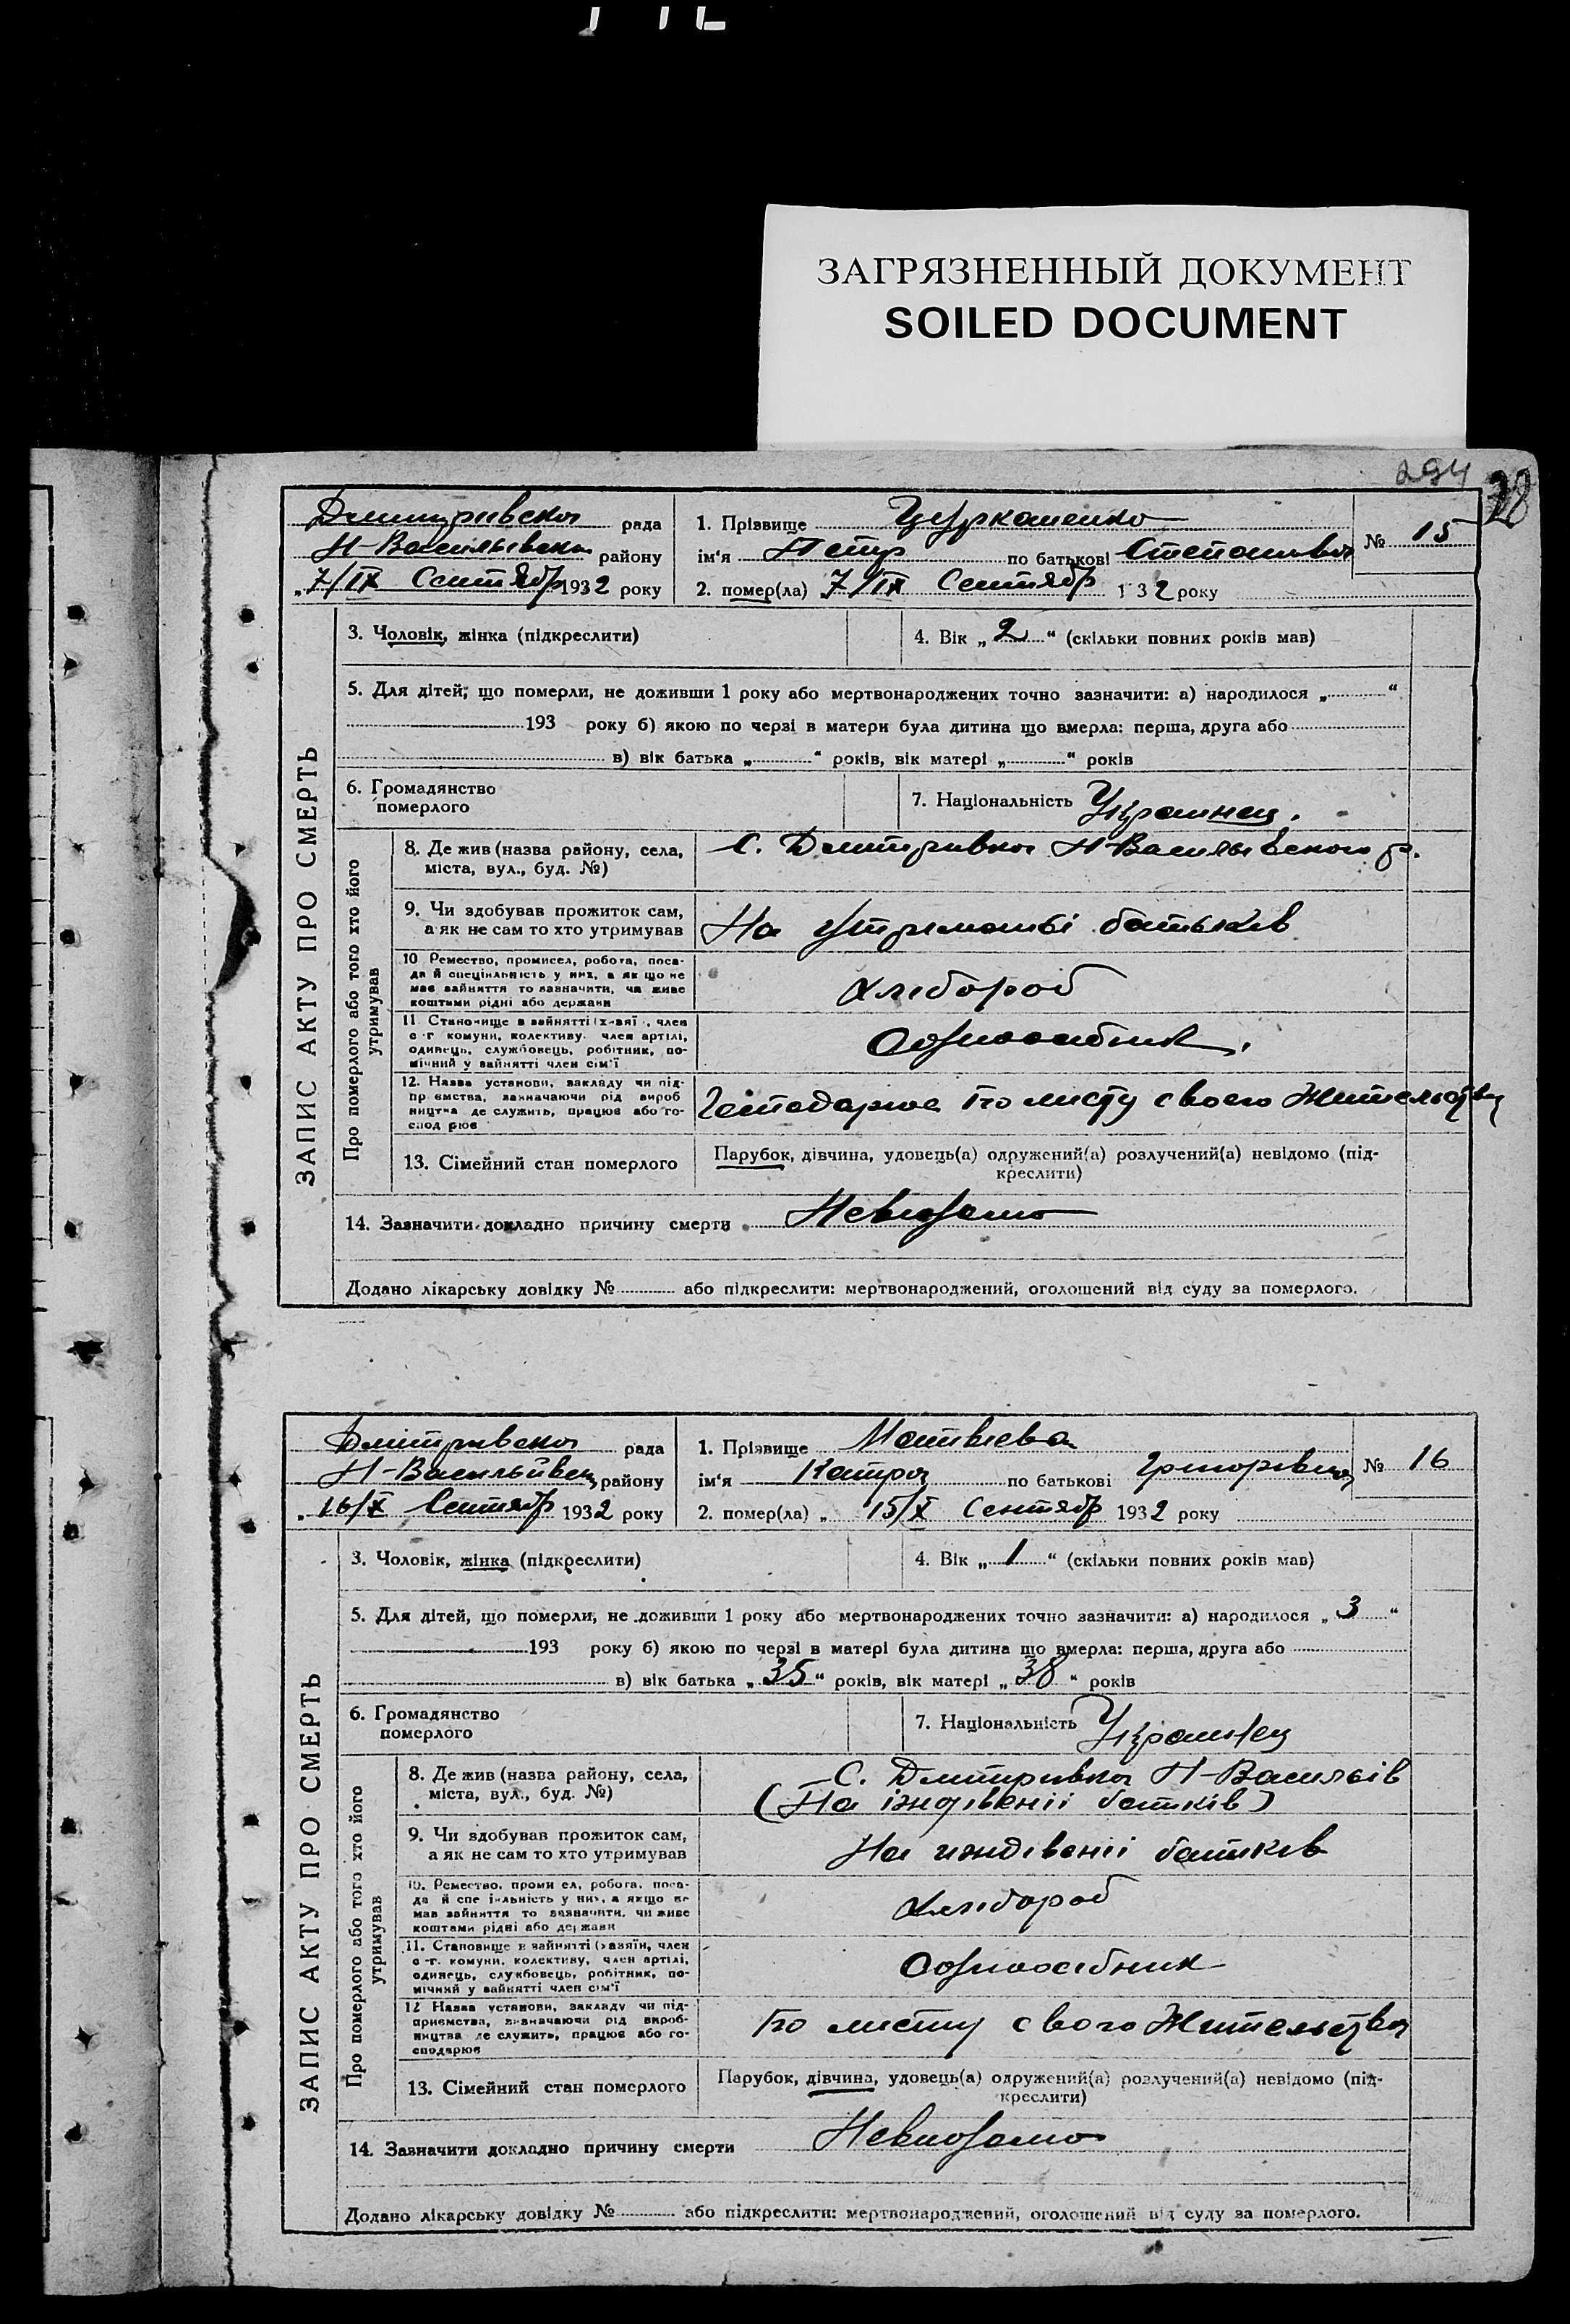 ЗАГРЯЗНЕННЫЙ ДОКУМЕНТ
SOILED DOCUMENT
294
28
ЗАПИС АКТУ ПРО СМЕРТЬ
Дмитрівска рада
Н-Васильївська району
„7/IX Сентябр 1932 року
1. Прізвище Цуркаленко
ім'я Петр по батькові Степанович
№ 15
2. помер(ла) 7/IX Сентябр 1 32 року
3. Чоловік, жінка (підкреслити)
4. Вік „2“ (скільки повних років мав)
5. Для дітей, що померли, не доживши 1 року або мертвонароджених точно зазначити: а) народилося „ “
193 року б) якою по черзі в матери була дитина що вмерла: перша, друга або
в) вік батька „ “ років, вік матері „ “ років
6. Громадянство
померлого
7. Національність Украинец.
Про померлого або того хто його
утримував
8. Де жив (назва району, села,
міста, вул., буд. №)
С. Дмитривка Н-Васильевского р.
9. Чи здобував прожиток сам,
а як не сам то хто утримував
На утриманьі батьків
10 Ремество, промисел, робота, поса-
да й спеціяльність у них, а як що не
має зайняття то зазначити, чи живе
коштами рідні або держави
Хлібороб
11 Становище в зайнятті (х-зяї , член
с -г комуни, колективу член артілі,
одинець, службовець, робітник, по-
мічний у зайнятті член сім'ї
Одноосібник.
12. Назва установи, закладу чи під-
пр ємства, зазначаючи рід вироб
ництва де служить, працює або го-
спод рює
Господарює по місту своего Жительства
13. Сімейний стан померлого
Парубок, дівчина, удовець(а) одружений(а) розлучений(а) невідомо (під-
креслити)
14. Зазначити докладно причину смерти Невпознано
Додано лікарську довідку № або підкреслити: мертвонароджений, оголошений від суду за померлого.
ЗАПИС АКТУ ПРО СМЕРТЬ
Дмітрівска рада
Н-Васильївск району
„16/X Сентябр 1932 року
1. Прізвище Матвієва
ім'я Катря по батькові Григорівна
№ 16
2. помер(ла) „ 15/X Сентябр 1932 року
3. Чоловік, жінка (підкреслити)
4. Вік „1“ (скільки повних років мав)
5. Для дітей, що померли, не доживши 1 року або мертвонароджених точно зазначити: а) народилося „3“
193 року б) якою по черзі в матері була дитина що вмерла: перша, друга або
в) вік батька „35“ років, вік матері „38“ років
6. Громадянство
померлого
7. Національність Украинец
Про померлого або того хто його
утримував
8. Де жив (назва району, села,
міста, вул., буд. №)
С. Дмитривка Н-Васильів
(На іждівеніі батків)
9. Чи здобував прожиток сам,
а як не сам то хто утримував
На иждівеніі батьків
10. Ремество, проми ел, робота, поса-
да й спе іяльність у них, а якщо не
мав зайняття то зазначити, чи живе
коштами рідні або держави
Хлібороб
11. Становище в зайнятті (хазяїн, член
с -г. комуни, колективу, член артілі,
одинець, службовець, робітник, по-
мічний у зайнятті член сім'ї
Одноосібник
12 Назва установи, закладу чи під-
приємства, зазначаючи рід вироб-
ництва де служить, працює або го-
сподарює
По місту свого Жительства
13. Сімейний стан померлого
Парубок, дівчина, удовець(а) одружений(а) розлучений(а) невідомо (під-
креслити)
14. Зазначити докладно причину смерти Невпознано
Додано лікарську довідку № або підкреслити: мертвонароджений, оголошений від суду за померлого.